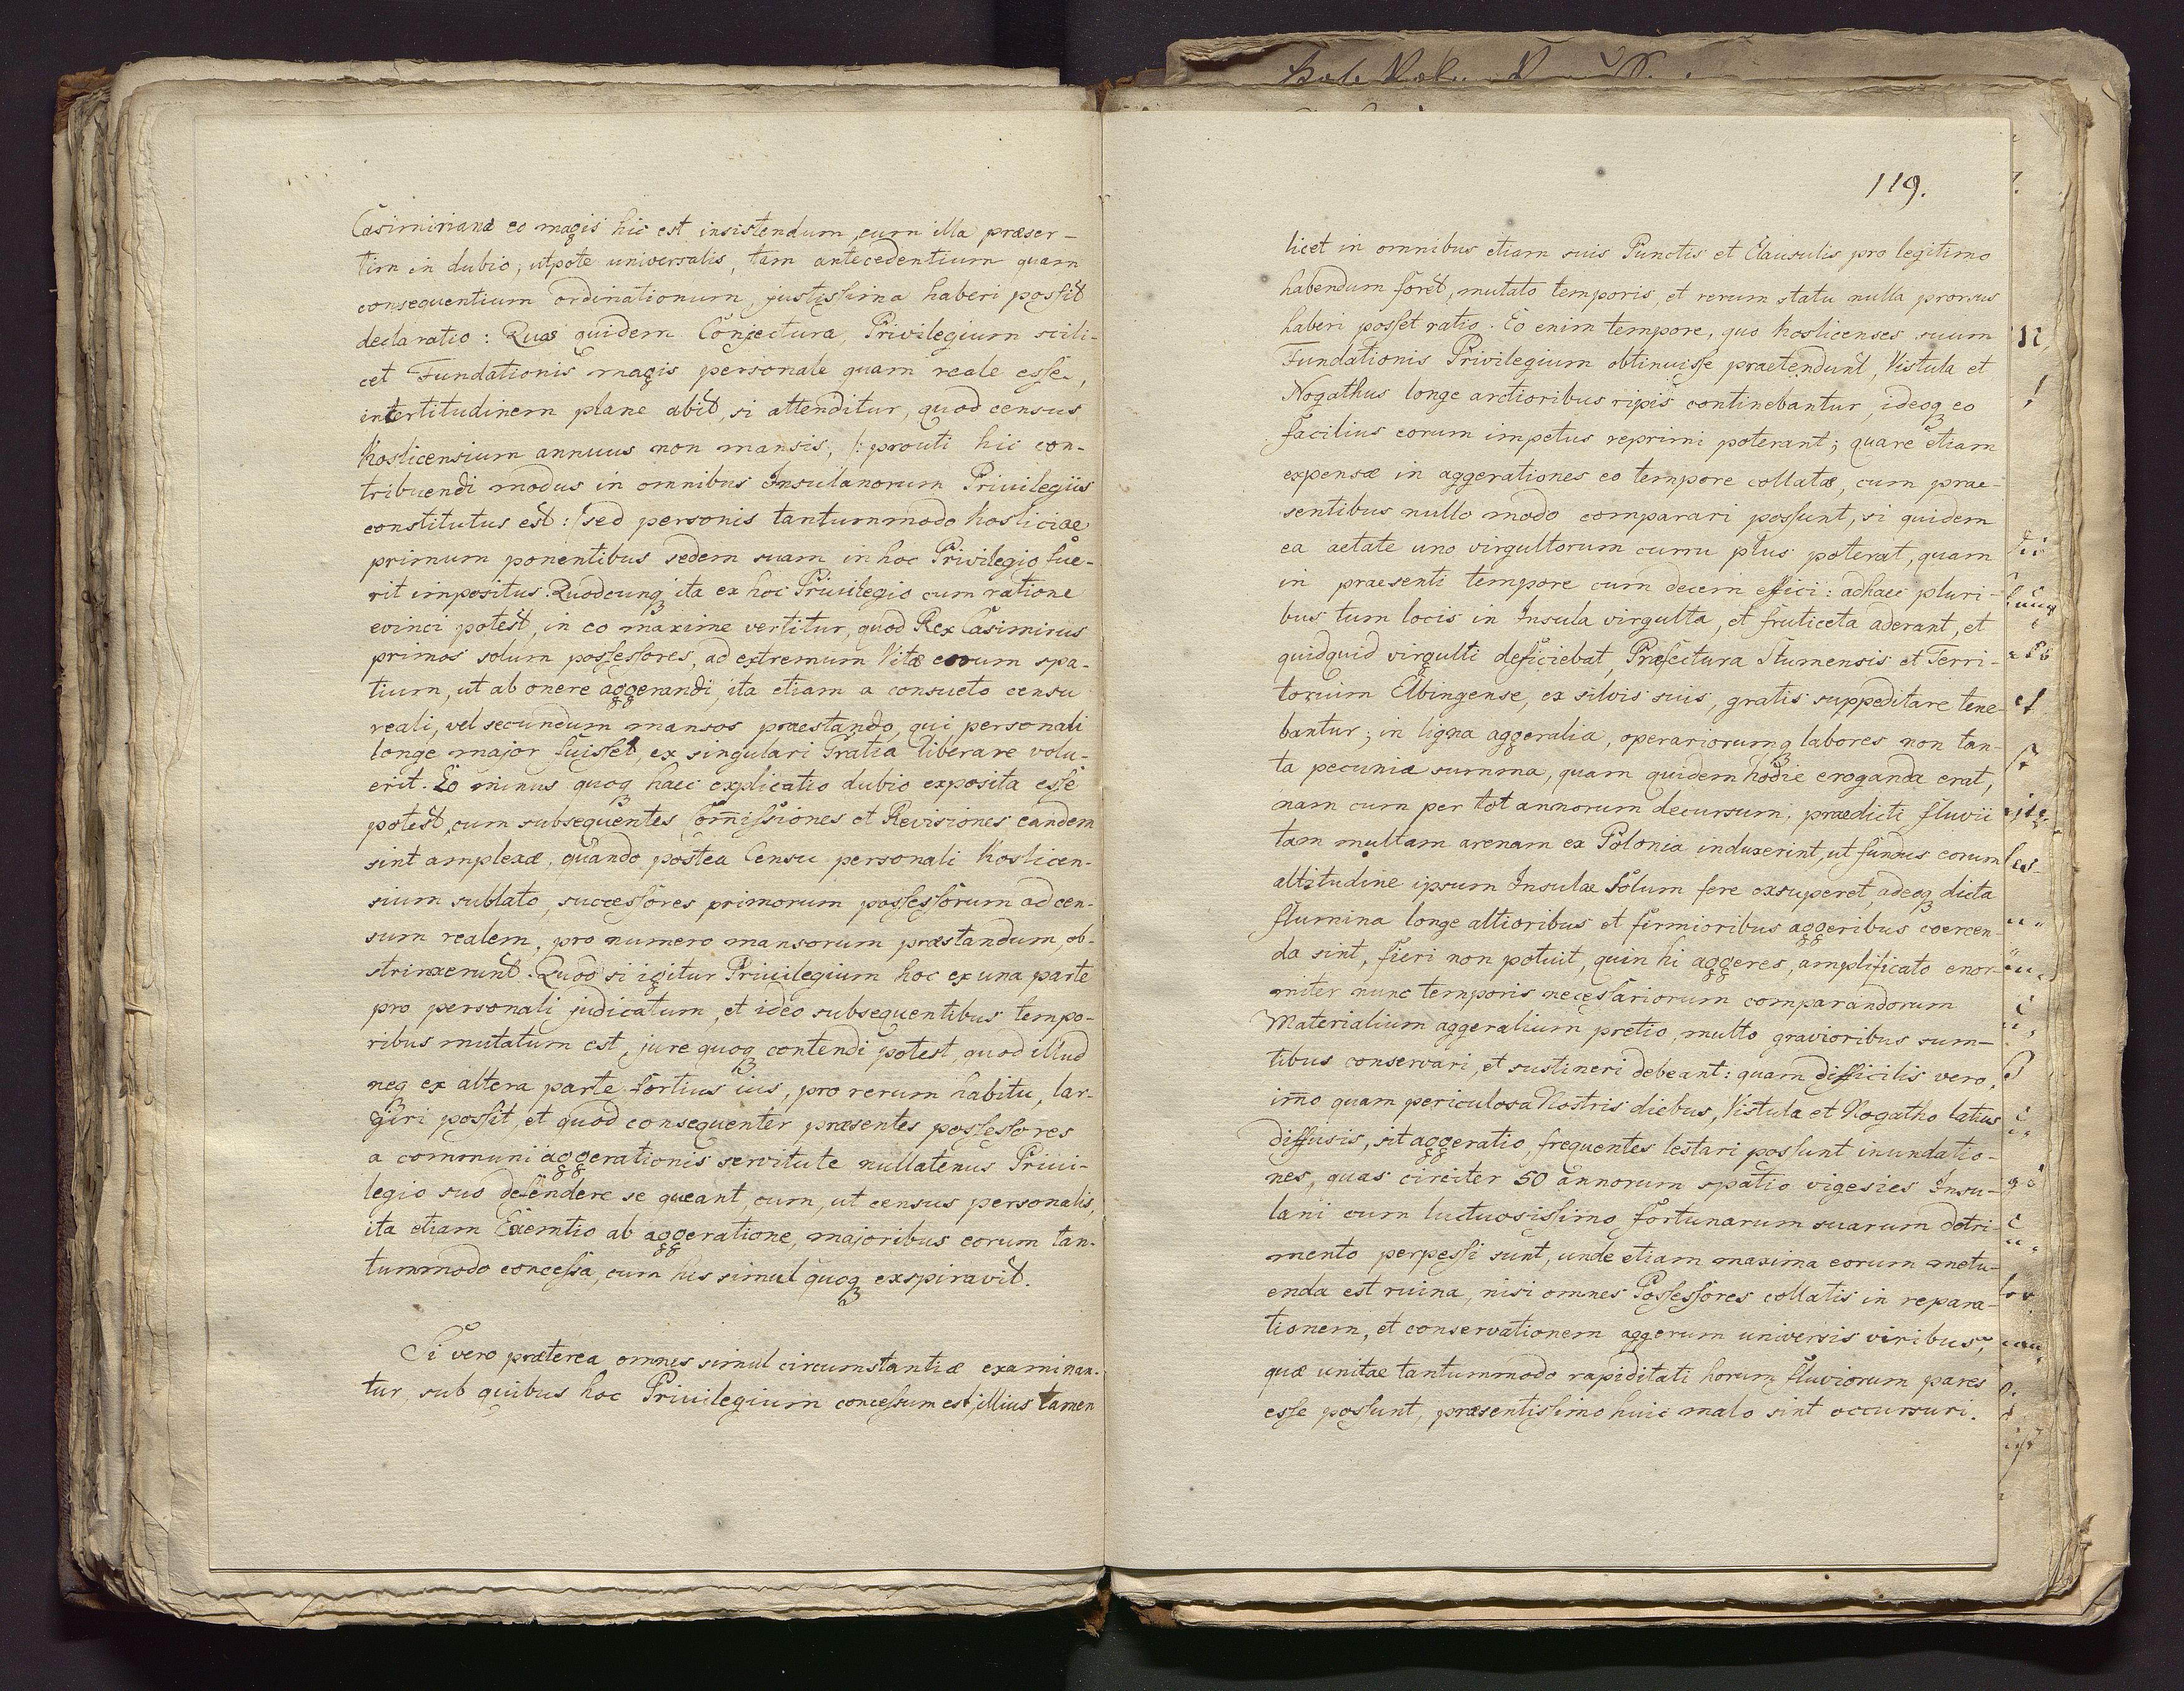 Casimiriana eo magis hic est insistendum, cum illa præser-
tim in dubio, utpote universalis, tam antecedentium quam
consequentium ordinationum, justissima haberi possit
declaratio: Quæ quidem Conjectura, Privilegium scili-
cet Fundationis magis personale quam reale esse,
incertitudinem plane abit, si attenditur, quod census
Koslicensium annuus non mansis, /: prouti hic con-
tribuendi modus in omnibus Insulanorum Privilegiis
constitutus est :/ sed personis tantummodo Kosliciae
primum ponentibus sedem suam in hoc Privilegio fue-
rit impositus. Quodcunq ita ex hoc Privilegio cum ratione
evinci potest, in eo maxime vertitur, quod Rex Casimirus
primos solum possessores, ad extremum Vitæ eorum spa-
tium, ut ab onere aggerandi, ita etiam a consueto censu
reali, vel secundum mansos praestando, qui personali
longe major fuisset, ex singulari Gratia liberare volu-
erit. Eo minus quoq haec explicatio dubio exposita esse
potest, cum subsequentes Com̄issiones et Revisiones eandem
sint amplexæ, quando postea Censu personali Koslicen-
sium sublato, successores primorum possessorum ad cen-
sum realem, pro numero mansorum præstandum, ob-
strinxerunt. Quod si igitur Privilegium hoc ex una parte
pro personali judicatum, et ideo subsequentibus tempo-
ribus mutatum est, jure quoq contendi potest, quod illud
neq ex altera parte fortius ius, pro rerum habitu, lar-
giri possit, et quod consequenter præsentes possessores
a communi aggerationis servitute nullatenus Privi-
legio suo defendere se queant, cum, ut census personalis,
ita etiam Exemtio ab aggeratione, majoribus eorum tan-
tummodo concessa, cum his simul quoq exspiravit.
Si vero præterea omnes simul circumstantiæ examinan-
tur, sub quibus hoc Privilegium concessum est, illius tamen
119.
licet in omnibus etiam suis Punctis et Clausulis pro legitimo
habendum foret, mutato temporis, et rerum statu nulla prorsus
haberi posset ratio. Eo enim tempore, quo Koslicenses suum
Fundationis Privilegium obtinuisse praetendunt, Vistula et
Nogathus longe arctioribus ripis continebantur, ideoq eo
facilius eorum impetus reprimi poterant; quare etiam
expensæ in aggerationes eo tempore collatæ, cum prae-
sentibus nullo modo comparari possunt, si quidem
ea aetate uno virgultorum curru plus poterat, quam
in praesenti tempore cum decem effici: adhaec pluri-
bus tum locis in Insula virgulta, et fruticeta aderant, et
quidquid virgulti deficiebat, Præfectura Stumensis et Terri-
torium Elbingense, ex silvis suis, gratis suppeditare tene-
bantur; in ligna aggeralia, operariorumq labores non tan-
ta pecuniæ summa, quam quidem hodie eroganda erat,
nam cum per tot annorum decursum, praedicti fluvii
tam multam arenam ex Polonia induxerint, ut fundus eorum
altitudine ipsum Insulae Solum fere exsuperet, adeoq dicta
flumina longe altioribus et firmioribus aggeribus coercen-
da sint, fieri non potuit, quin hi aggeres, amplificato enor-
miter nunc temporis necessariorum comparandorum
Materialium aggeralium pretio, multo gravioribus sum-
tibus conservari, et sustineri debeant: quam difficilis vero,
im̄o quam periculosa Nostris diebus, Vistula et Nogatho latius
diffusis, sit aggeratio, frequentes testari possunt inundatio-
nes, quas circiter 50 annorum spatio vigesies Insu-
lani cum luctuosissimo fortunarum suarum detri-
mento perpessi sunt, unde etiam maxima eorum metu-
enda est ruina, nisi omnes Possessores collatis in repara-
tionem, et conservationem aggerum universis viribus,
quæ unitae tantummodo rapiditati horum fluviorum pares
esse possunt, præsentissimo huic malo sint occursuri.